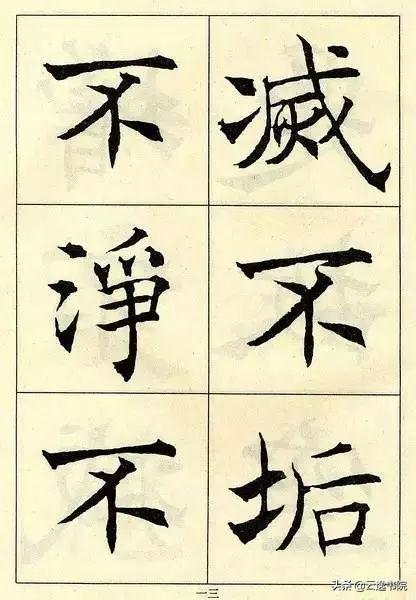 滅不垢
不淨不
一三
头条@云逸书院